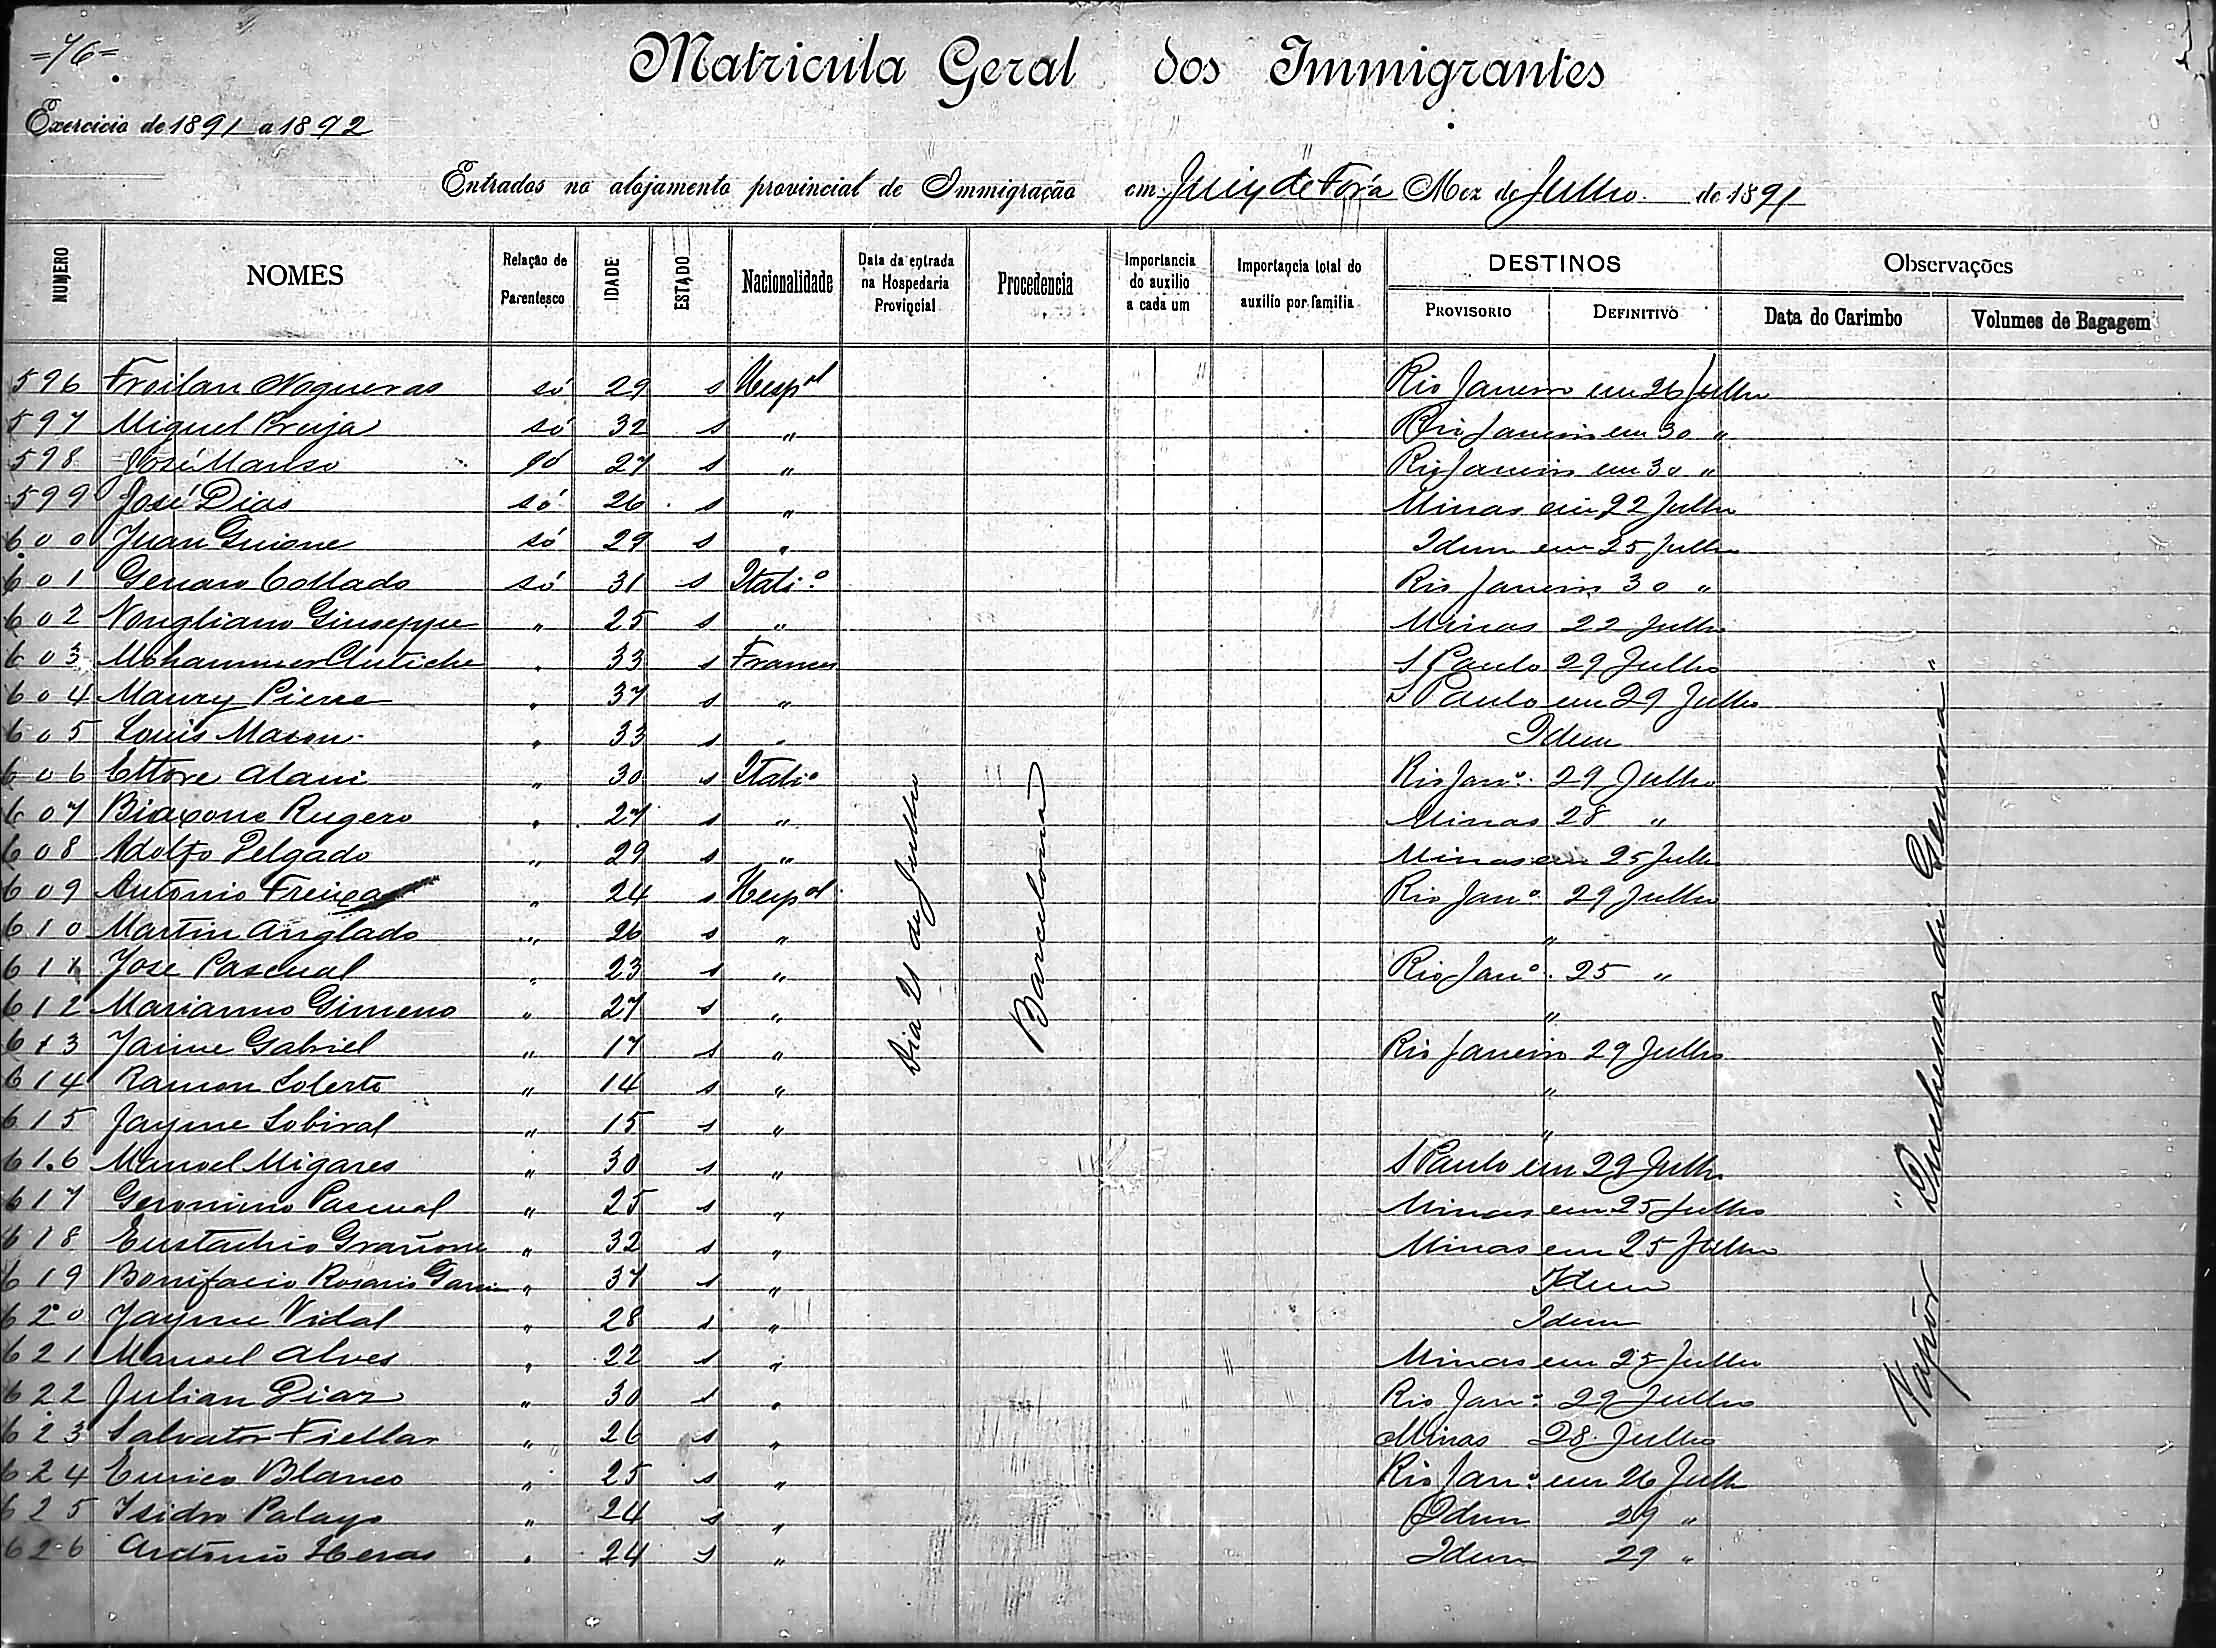 =76=
Matricula Geral dos Immigrantes
Exercicio de 1891 a 1892
Entrados no alojamento provincial de Immigração em Juiz de Fóra Mez de Julho de 1891
NUMERO NOMES Relação de Parentesco IDADE ESTADO Nacionalidade Data da entrada na Hospedaria Provincial Procedencia Importancia do auxilio a cada um Importancia total do auxilio por familia DESTINOS PROVISORIO DEFINITIVO Observações Data do Carimbo Volumes de Bagagem
596 Froilan Nogueras só 29 s Hesp.ol Rio Janeiro em 26 Julho
597 Miguel Bruja só 32 s " Rio Janeiro em 30 "
598 José Manso só 27 s " Rio Janeiro em 30 "
599 José Dias só 26 s " Minas em 22 Julho
600 Juan Guione só 29 s " Idem em 25 Julho
601 Genaro Collado só 31 s Itali.o Rio Janeiro 30 "
602 Giuseppe " 25 s " Minas 22 Julho
603 33 s Frances S Paulo 29 Julho
604 Maury Pierre " 37 s " S Paulo em 29 Julho
605 Louis Mason " 33 s " Idem
606 Ettore Alani " 30 s Itali.o Rio Jan.o 29 Julho
607 Rugero " 27 s " Minas 28 "
608 Adolfo Delgado " 29 s " Minas em 25 Julho
609 Antonio Freixa " 24 s Hesp.ol Rio Jan.o 29 Julho
610 Martin Anglado " 26 s " "
611 José Pascual " 23 s " Rio Jan.o 25 "
612 Marianno Gimeno " 27 s " "
613 Jaime Gabriel " 17 s " Rio Janeiro 29 Julho
614 Ramon Solerto " 14 s " "
615 Jayme Sobiral " 15 s " "
616 Manoel Migares " 30 s " S Paulo em 29 Julho
617 Geronimo Pascual " 25 s " Minas em 25 Julho
618 Eustachio Grañone " 32 s " Minas em 25 Julho
619 Bonifacio Rosario Garcia " 37 s " Idem
620 Jayme Vidal " 28 s " Idem
621 Manoel Alves " 22 s " Minas em 25 Julho
622 Julian Diaz " 30 s " Rio Jan.o 29 Julho
623 Salvator Fiellas " 26 s " Minas 28 Julho
624 Eurico Blanco " 25 s " Rio Jan.o em 26 Julh
625 Isidro Palayo " 24 s " Idem 29 "
626 Antonio Heras " 24 s " Idem 29 "
Dia 21 de Julho
Barcelona
Vapor "Duchessa di Genova"